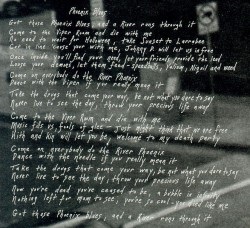 Phoenix Blues
Got those Phoenix Blues and a River runs through it
Come to the Viper Room and die with me
No need to wait for Halloween, take Sunset to Larrabee
Get in line 'cause your with me, Johnny D will let us in free
Once inside you'll find your need, let your friends provide the load
Lose your enemies, let them feed - Speedballs, Valium, Nyquil and weed
Come on everybody do the River Phoenix
Dance with the viper if you really mean it
Take the drugs that come your way, be not what you dare to say
Never live to see the day, throw your precious life away
Come to the Viper Room and die with me
with me will let you be, welcome to my death party
Come on everybody do the River Phoenix
Dance with the needle if you really mean it
Take the drugs that come your way, be not what you dare to say
Never live to see the day, throw your precious life away
Now you're dead you've ceased to be, a bubble in
Nothing left for man to see, you're so cool - you died like me
Got those Phoenix blues, and a River runs through it